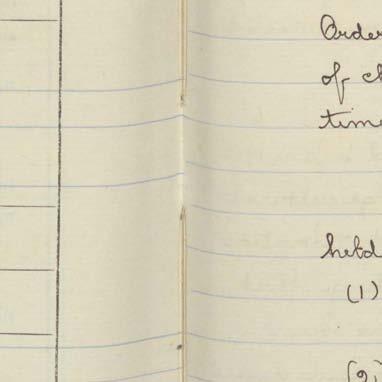 Order
of ch
time
held
(1)
(2)